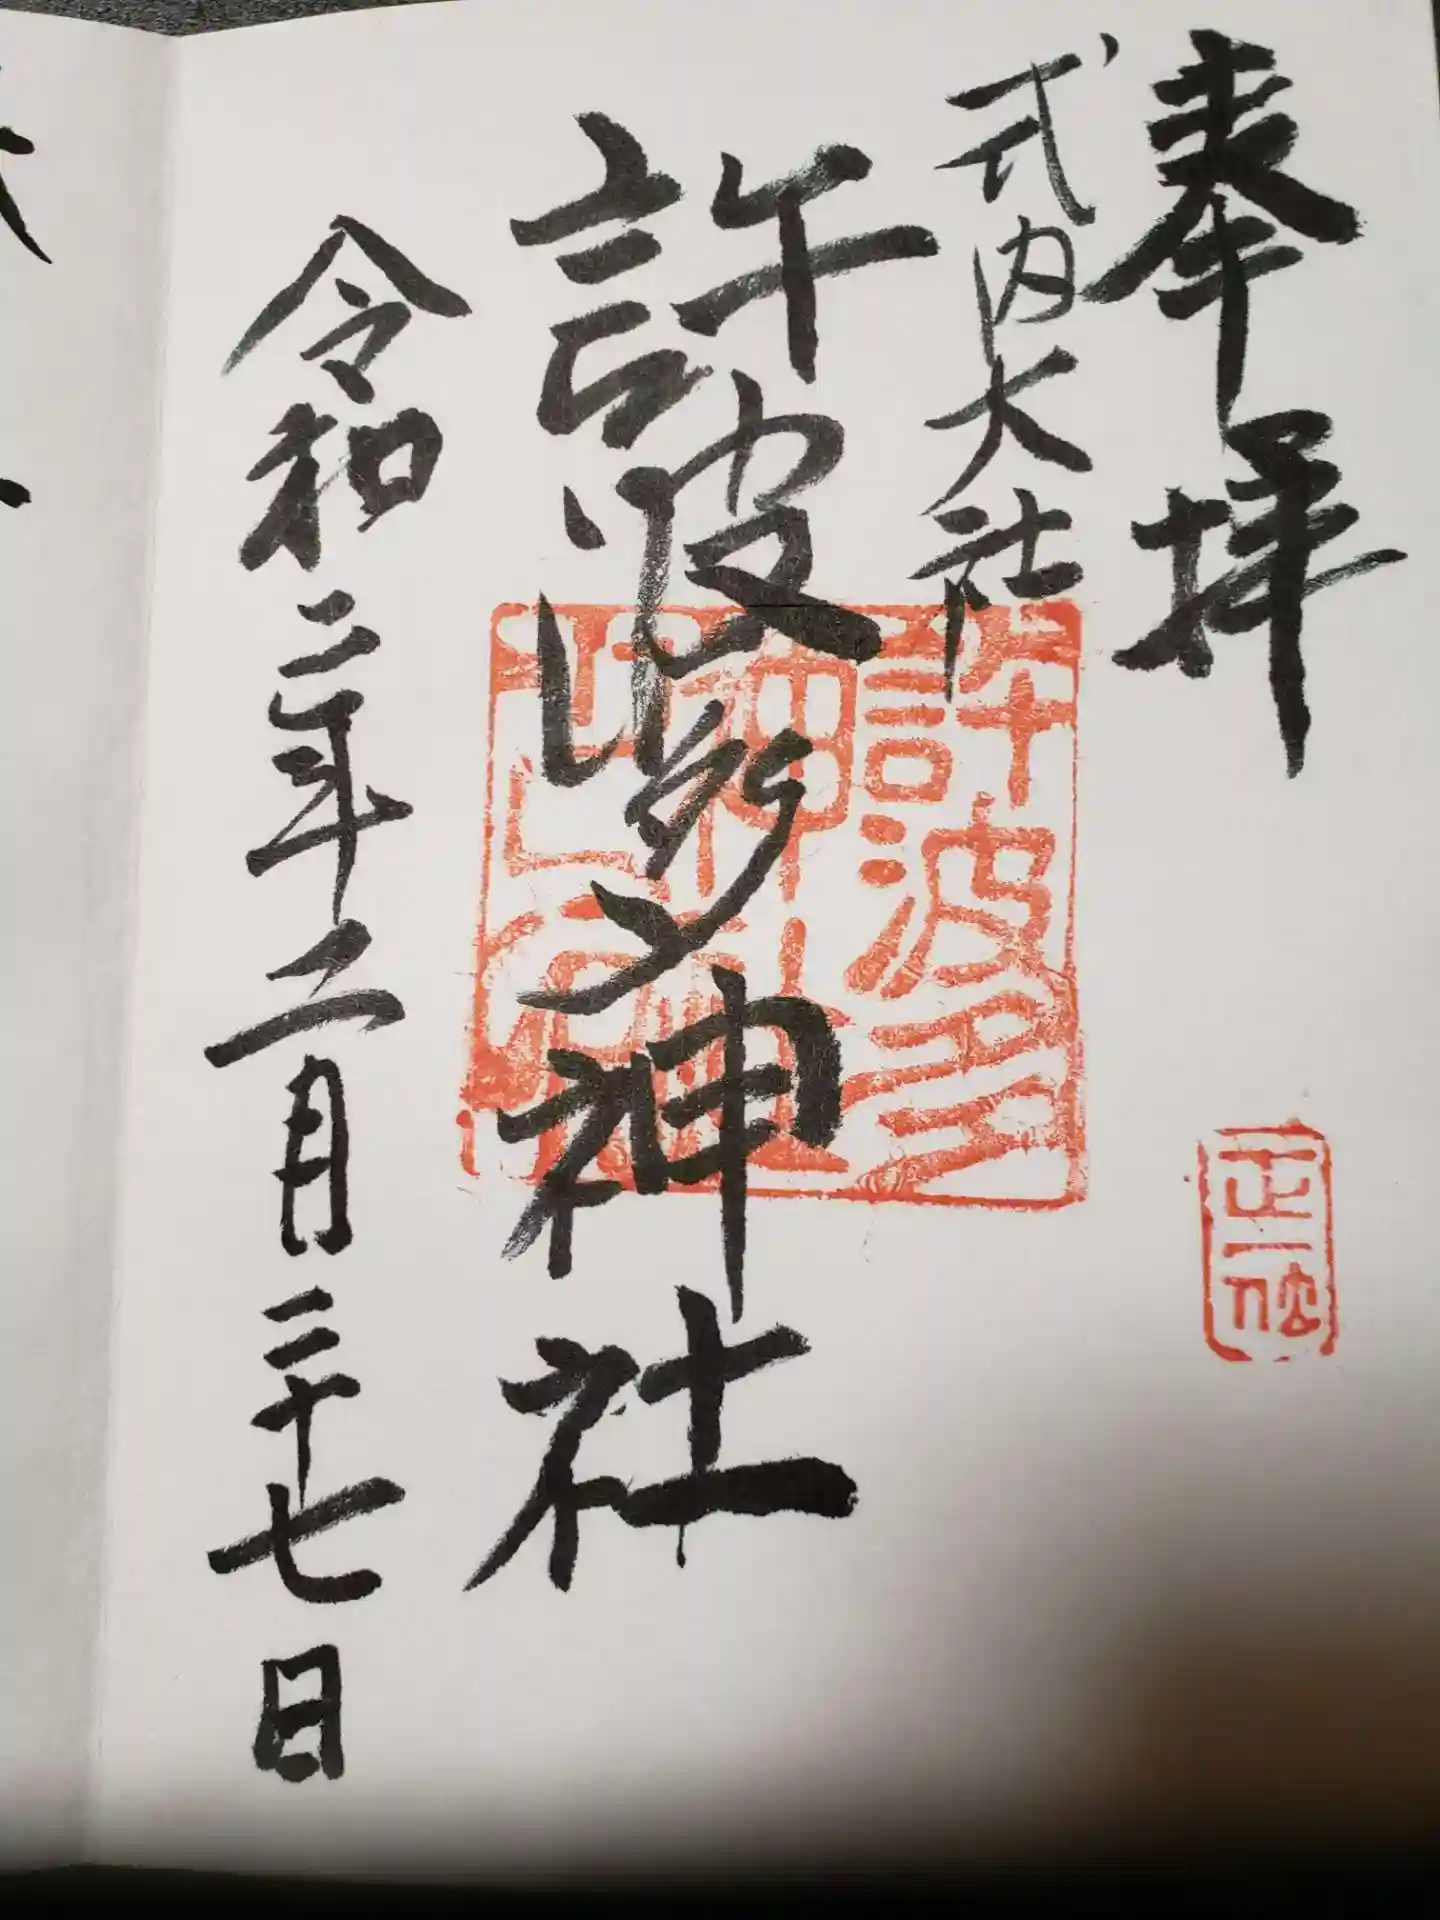 奉拝
式内大社
許波多神社
令和二年二月二十七日
許波多
神社
正一位